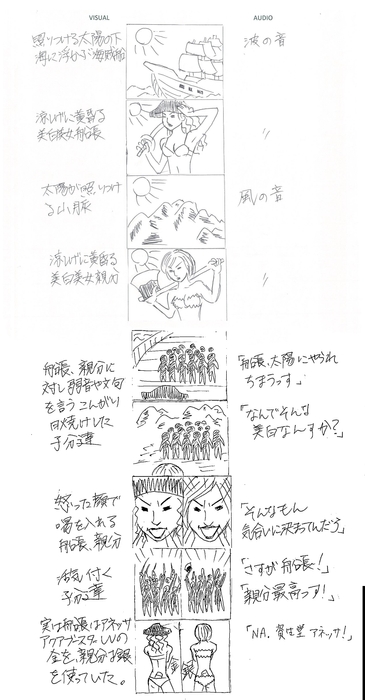 VISUAL
AUDIO
照りつける太陽の下
海に浮かぶ海賊船
波の音
涼しげに黄昏る
美白美女船張
〃
太陽が照りつけ
る山脈
風の音
涼しげに黄昏る
美白美女親分
〃
船張、親分に
対し弱音や文句
を言うこんがり
日焼けした
子分達
「船張、太陽にやられ
ちまうっす」
「なんでそんな
美白なんすか?」
怒った顔で
喝を入れる
船張、親分
「そんなもん
気合いに決まってんだろ」
活気付く
子分達
「さすが船張!」
「親分最高っす!」
実は船張はアネッサ
アクアブースターUVの
金を、親分は銀
を使っていた。
金
銀
「NA. 資生堂 アネッサ!」